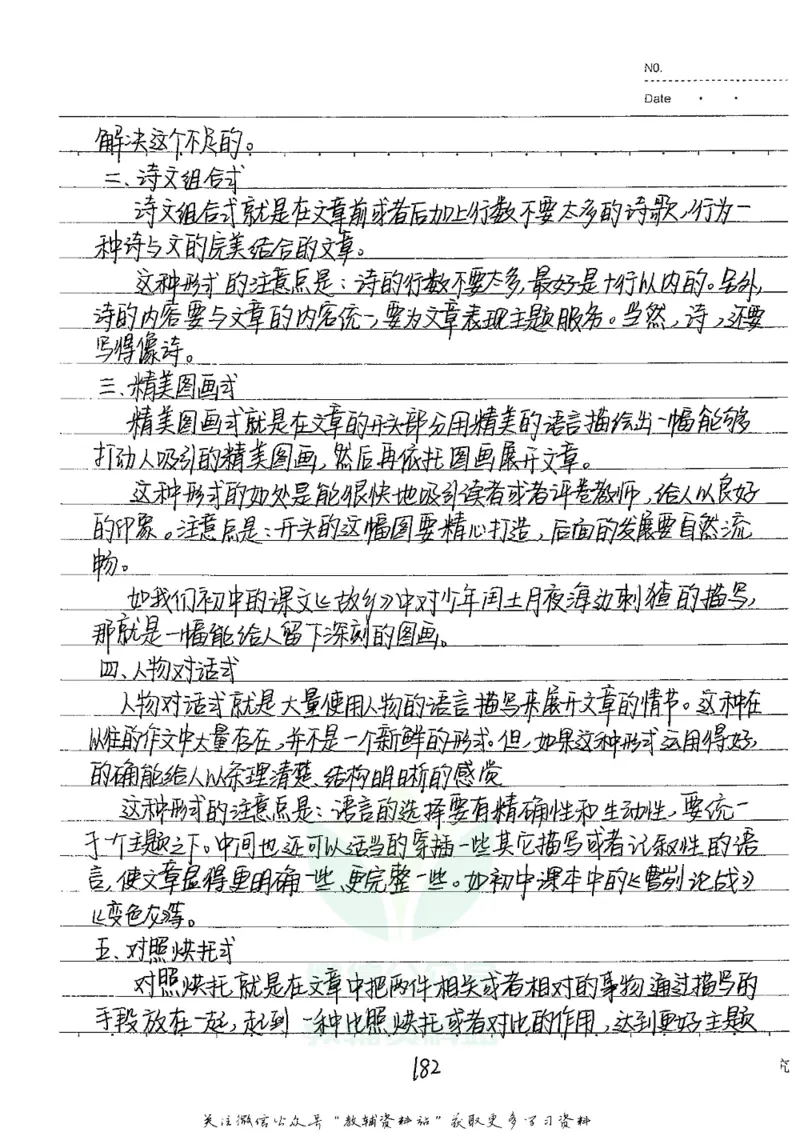 NO.
Date
解决这个不足的。
二、诗文组合式
诗文组合式就是在文章前或者后加上行数不要太多的诗歌,行为一
种诗与文的完美结合的文章。
这种形式的注意点是：诗的行数不要太多,最好是十行以内的。另外,
诗的内容要与文章的内容统一,要为文章表现主题服务。当然,诗,还要
写得像诗。
三、精美图画式
精美图画式就是在文章的开头部分用精美的语言描绘出一幅能够
打动人吸引的精美图画,然后再依托图画展开文章。
这种形式的好处是能很快地吸引读者或者评卷教师,给人以良好
的印象。注意点是：开头的这幅图要精心打造,后面的发展要自然流
畅。
如我们初中的课文《故乡》中对少年闰土月夜海边刺猹的描写,
那就是一幅能给人留下深刻的图画。
四、人物对话式
人物对话式就是大量使用人物的语言描写来展开文章的情节。这种在
以往的作文中大量存在,并不是一个新鲜的形式。但,如果这种形式运用得好,
的确能给人以条理清楚、结构明晰的感觉
这种形式的注意点是：语言的选择要有精确性和生动性,要统一
于个主题之下。中间也还可以适当的穿插一些其它描写或者记叙性的语
言,使文章显得更明确一些、更完整一些。如初中课本中的《曹刿论战》
《变色龙》等。
五、对照烘托式
对照烘托就是在文章中把两件相关或者相对的事物通过描写的
手段放在一起,起到一种比照烘托或者对比的作用,达到更好主题
182
关注微信公众号"教辅资料站"获取更多学习资料